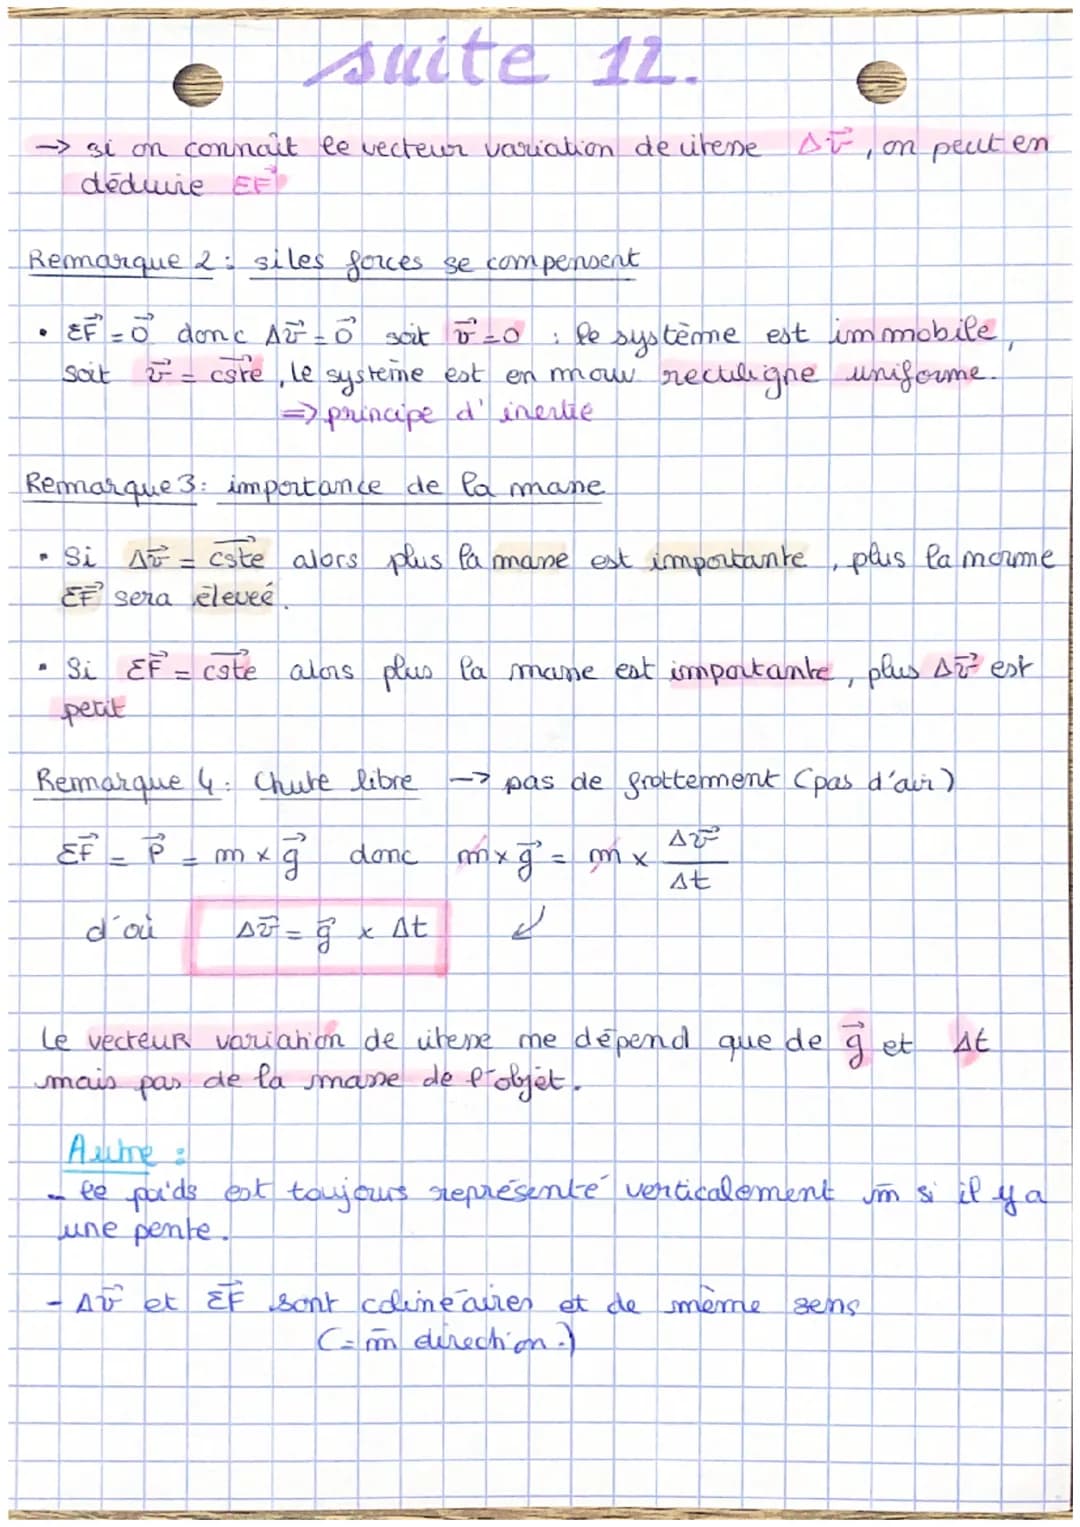 suite 12.
→ si on connaît le vecteur variation de vitesse Δv⃗, on peut en
déduire ΣF⃗
Remarque 2 : si les forces se compensent
• ΣF⃗ = 0⃗ donc Δv⃗ = 0⃗ soit v⃗ = 0 : le système est immobile,
soit v⃗ = cste⃗, le système est en mouv rectiligne uniforme.
=> principe d'inertie
Remarque 3 : importance de la masse
• Si Δv⃗ = cste⃗ alors plus la masse est importante, plus la norme
ΣF⃗ sera éleveé.
• Si ΣF⃗ = cste⃗ alors plus la masse est importante, plus Δv⃗ est
petit
Remarque 4 : Chute libre → pas de frottement (pas d'air)
ΣF⃗ = P⃗ = m × g⃗ donc m × g⃗ = m × Δv⃗ / Δt
d'où Δv⃗ = g⃗ × Δt ↙
Le vecteur variation de vitesse ne dépend que de g⃗ et Δt
mais pas de la masse de l'objet.
Autre :
- le poids est toujours représenté verticalement m̄ si il y a
une pente.
- Δv⃗ et ΣF⃗ sont colinéaires et de même sens
(= m̄ direction.)